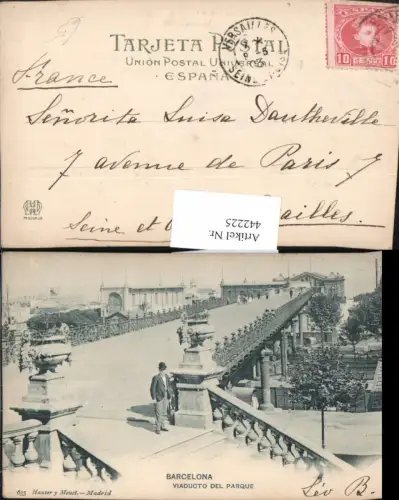 TARJETA POSTAL
UNIÓN POSTAL UNIVERSAL
ESPAÑA
VERSAILLES
SEINE
10 CENT 10
France
Señorita Luisa Dautheville
7 avenue de Paris 7
Seine et
ailles.
Artikel Nr.
442225
BARCELONA
VIADUCTO DEL PARQUE
675 Hauser y Menet.—Madrid
Léo B.